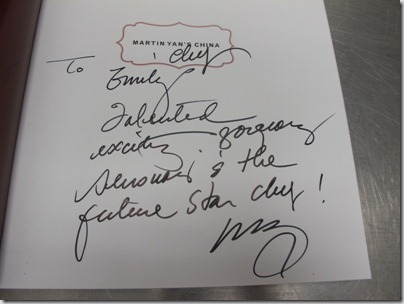 MARTIN YAN'S CHINA
To chef
Emily
Talented
exciting gorgeous
sensuous & the
future Star chef!